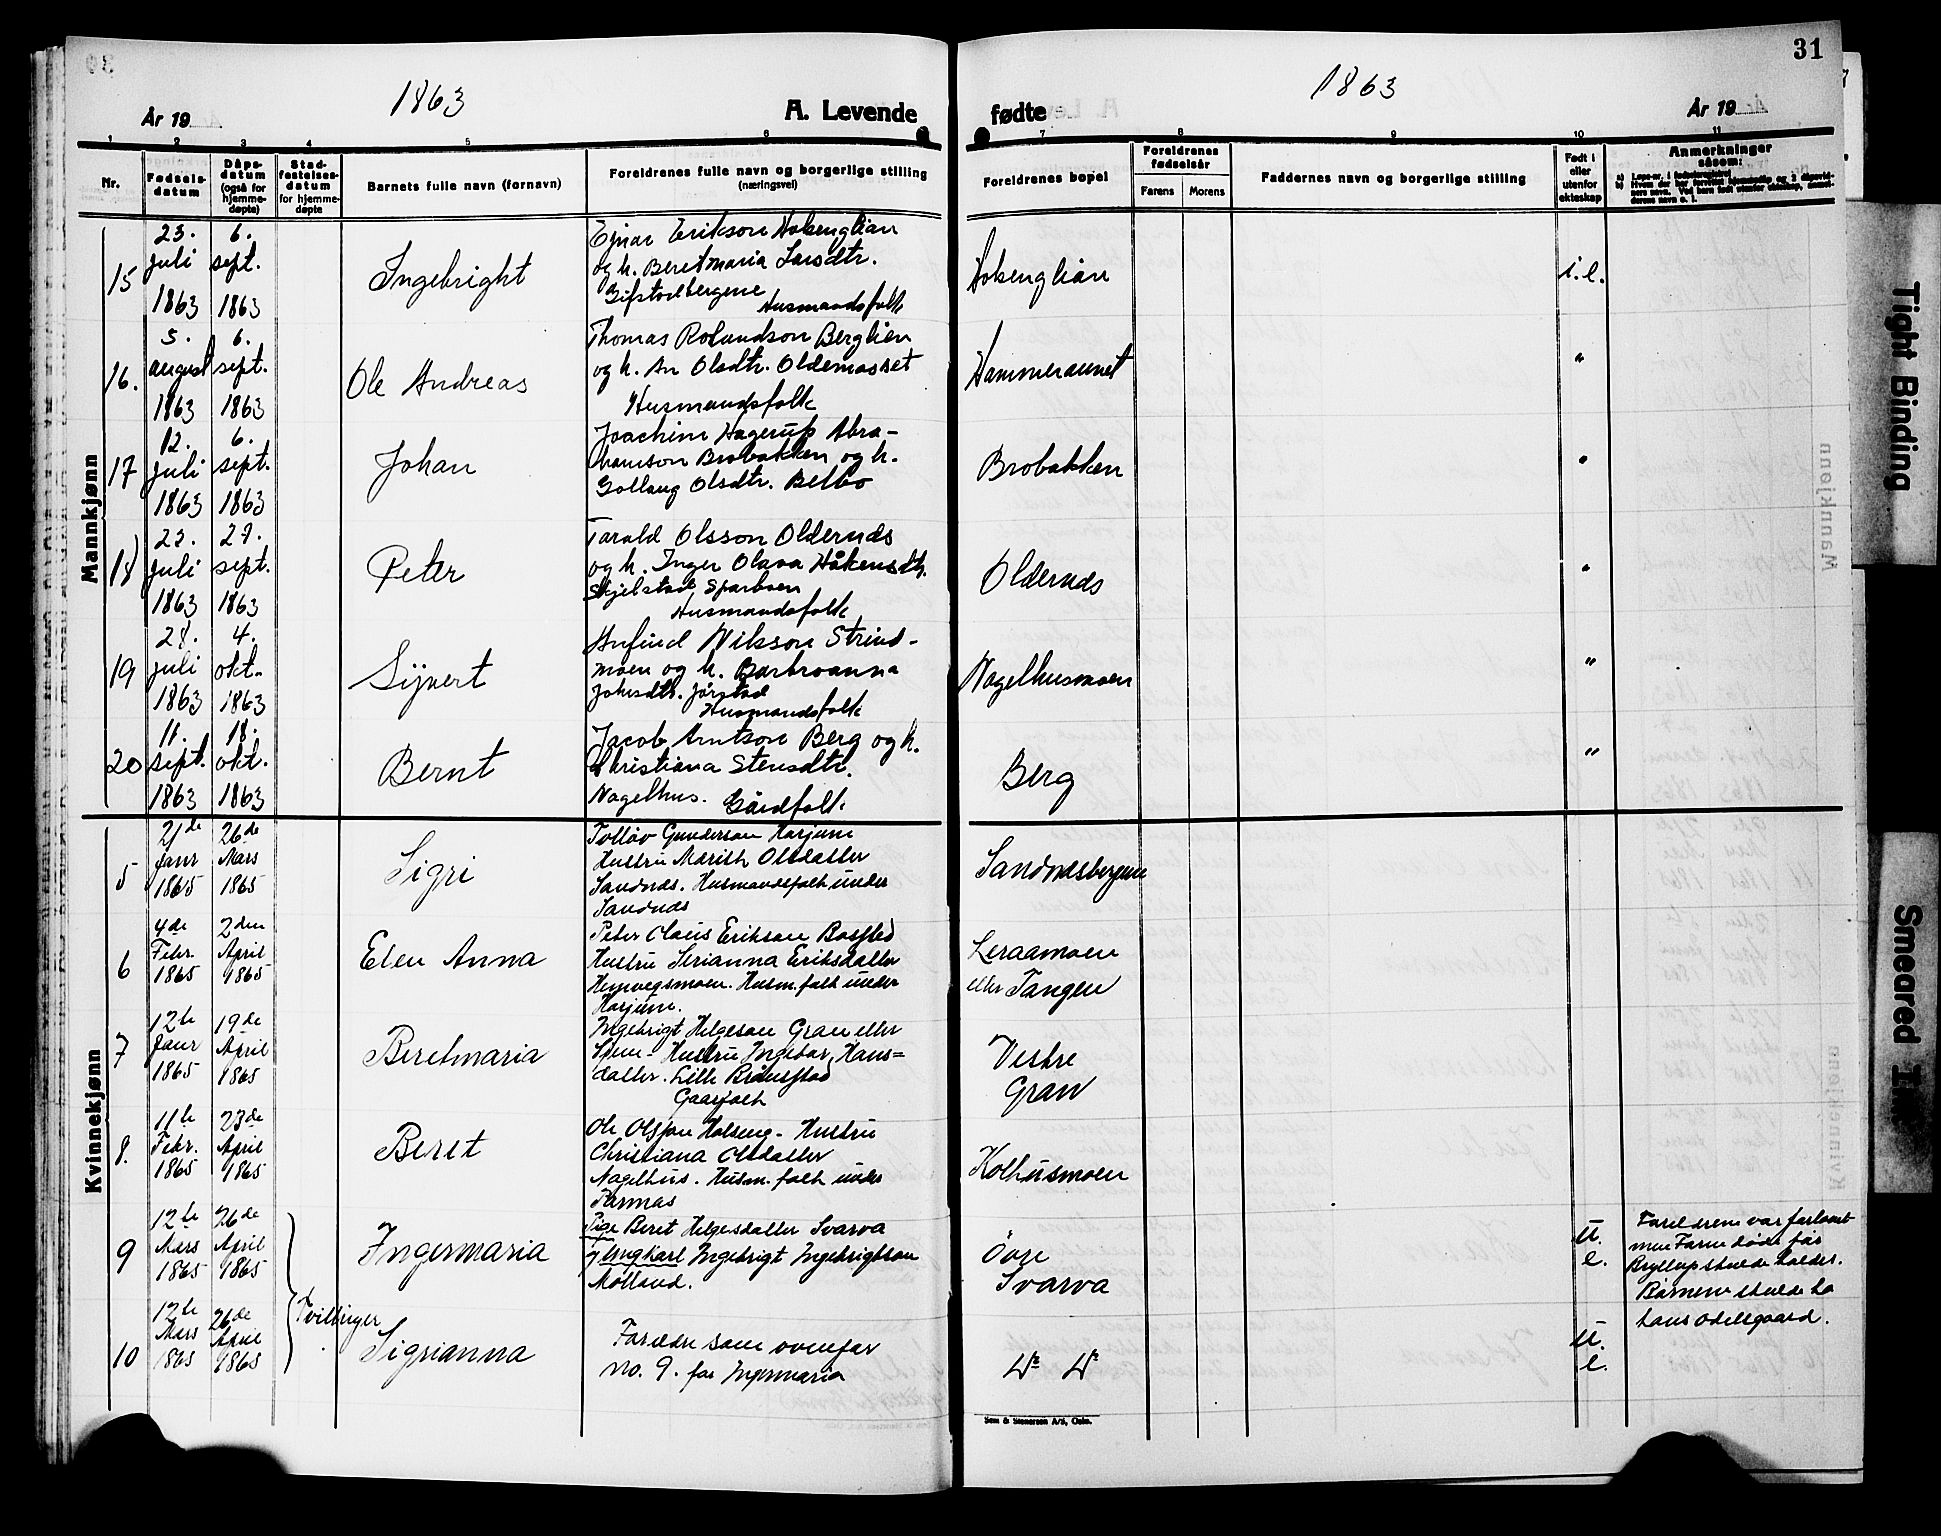 31
1863
1863
År 19
A. Levende
fødte
År 19
1 2 3 4 5 6 7 8 9 10 11
Nr.
Fødselsdatum
Dåpsdatum (også for hjemmedøpte)
Stadfestelsesdatum for hjemmedøpte
Barnets fulle navn (fornavn)
Foreldrenes fulle navn og borgerlige stilling
(næringsvei)
Foreldrenes bopel
Foreldrenes fødselsår
Farens
Morens
Faddernes navn og borgerlige stilling
Født i eller utenfor ekteskap
Anmerkninger
såsom:
Mannkjønn
15
23. juli 1863
6. sept. 1863
Ingebright
Ejnar Erikson Hobenglian
og h. Beretmaria Larsdtr.
Gifstadbergene
Husmandsfolk
Hobenglian
i.e.
16.
5. august 1863
6. sept. 1863
Ole Andreas
Thomas Rolandson Berglien
og h. An Olsdtr. Oldernesset
Husmandsfolk
Hammeraunet
"
17
12. juli 1863
6. sept. 1863
Johan
Joachim Hagerup Abra-
hamson Brobakken og h.
Gollaug Olsdtr. Belbo
Brobakken
"
18
23. juli 1863
27. sept. 1863
Peter
Tarald Olsson Oldernds
og h. Inger Olava Håkensdtr.
Skjelstad Sparboen
Husmandsfolk
Oldernds
"
19
28. juli 1863
4. okt. 1863
Sijvert
Anfind Nilsson Strind-
moen og h. Barbroanna
Johsdtr. Jørstad
Husmandsfolk
Nagelhusmoen
"
20
11. sept. 1863
18. okt. 1863
Bernt
Jacob Arntson Berg og h.
Christiana Stensdtr.
Nagelhus. Gårdfolk
Berg
"
Kvinnekjønn
5
21de Janr 1865
26de Mars 1865
Sigri
Tolløv Gunderson Harjum
Hustru Marith Olsdatter
Sandnds. Husmandsfolk under
Sandnds
Sandndsbergene
6
4de Febr. 1865
2den April 1865
Elen Anna
Peter Claus Erikson Bosstad
Hustru Serianna Eriksdatter
Hejnvegsmoen. Husm.folk under
Harjum.
Leraamoen
eller Tangen
7
12te Janr 1865
19de April 1865
Beretmaria
Ingebrigt Helgeson Gran eller
Hustru Ingebor Hans=
datter. Lille
Gaarfolk
Vestre
Gran
8.
11te Febr. 1865
23de April 1865
Beret
Ole Olsson Holseng - Hustru
Christiana Olsdatter
Nagelhus. Husm.folk under
Parmas
Kolhusmoen
9
12te Mars 1865
26de April 1865
Ingermaria
Pige Beret Helgesdatter Svarva
og Ungkarl Ingebrigt Ingebrigtson
Mølland.
Övre
Svarva
U.
e.
Foreldrene var forlovet
men Faren døde før
Bryllup skulde holdes.
Børnene skulde ha
hans odelsgaard.
10
12te Mars 1865
26de April 1865
Tvillinger
Sigrianna
Forældre som ovenfor
No. 9. for Ingermaria
Do Do
U.
e.
Sem & Stenersen A/S, Oslo.
Tight Binding
Smeared Ink